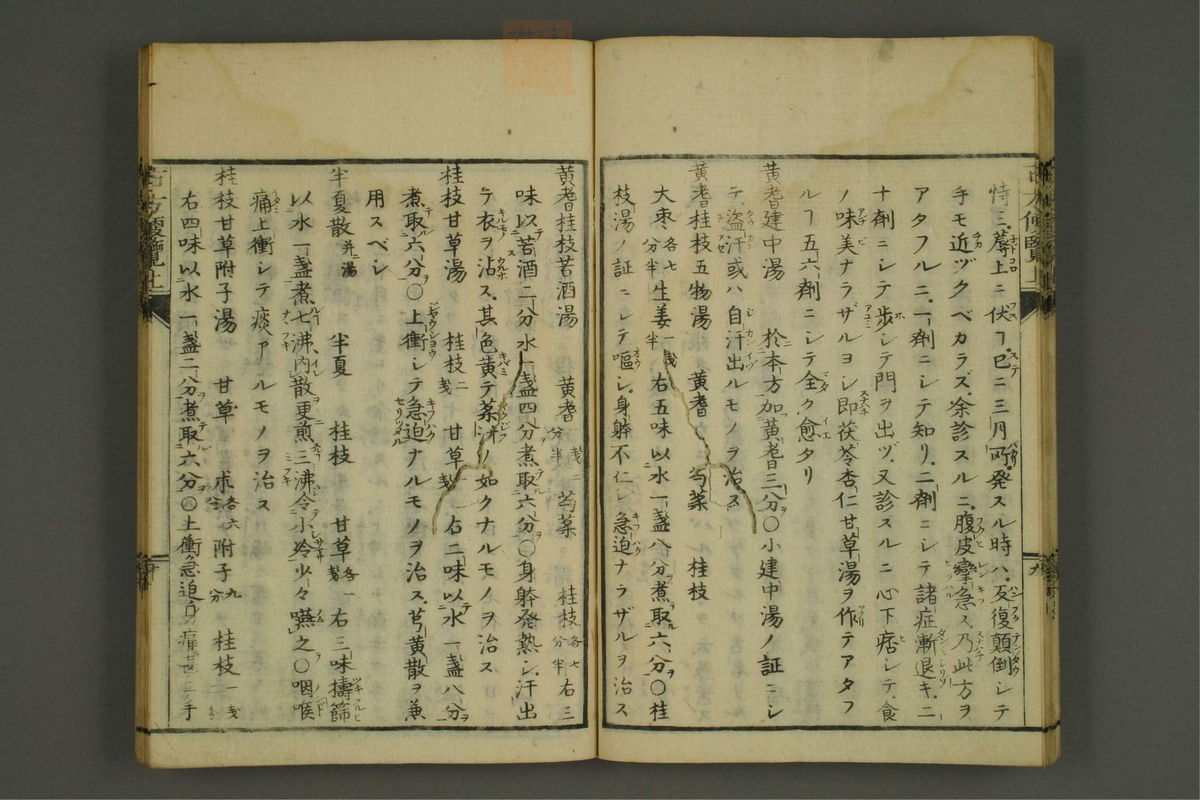 恃ミ蓐上ニ伏ス已ニ三月所発スル時ハ反復顛倒シテ
手モ近ヅクベカラズ余診スルニ腹皮攣急ス乃此方ヲ
アタフルニ一剤ニシテ知リ二剤ニシテ諸症漸退キ二
十剤ニシテ歩シテ門ヲ出ツ又診スルニ心下痞シテ食
ノ味美ナラザルヨシ即茯苓杏仁甘草湯ヲ作テアタフ
ルヿ五六剤ニシテ全ク愈タリ
黄耆建中湯 於本方加黄耆三分〇小建中湯ノ証ニシ
テ盗汗或ハ自汗出ルモノヲ治ス
黄耆桂枝五物湯 黄耆 芍薬 桂枝
大棗各七分半 生姜一戔半 右五味以水一盞八分煮取六分〇桂
枝湯ノ証ニシテ嘔シ身躰不仁シ急迫ナラザルヲ治ス
黄耆桂枝苦酒湯 黄耆 芍薬 桂枝各七分半 右三
味以苦酒二分水一盞四分煮取六分〇身躰発熱シ汗出
テ衣ヲ沾ス其色黄テ薬汁ノ如クナルモノヲ治ス
桂枝甘草湯 桂枝二戔 甘草戔 右二味以水一盞八分
煮取六分〇上衝シテ急迫ナルモノヲ治ス芎黄散ヲ兼
用スベシ
半夏散并ニ湯 半夏 桂枝 甘草各一戔 右三味擣篩
以水一盞煮七沸内散更煎三沸令小冷少々嚥之〇咽喉
痛上衝シテ痰アルモノヲ治ス
桂枝甘草附子湯 甘草 朮各六分 附子九分 桂枝一戔
右四味以水一盞二分煮取六分〇上衝急迫身痛甚ニ手
古方便覧上
九